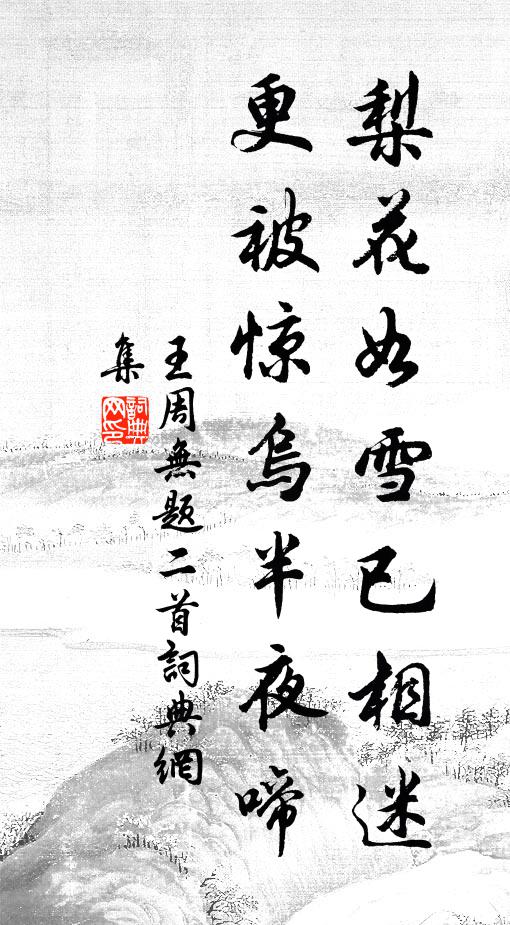 梨花如雪已相迷
更被惊乌半夜啼
王周無题二首詞典網
集
詞典網印